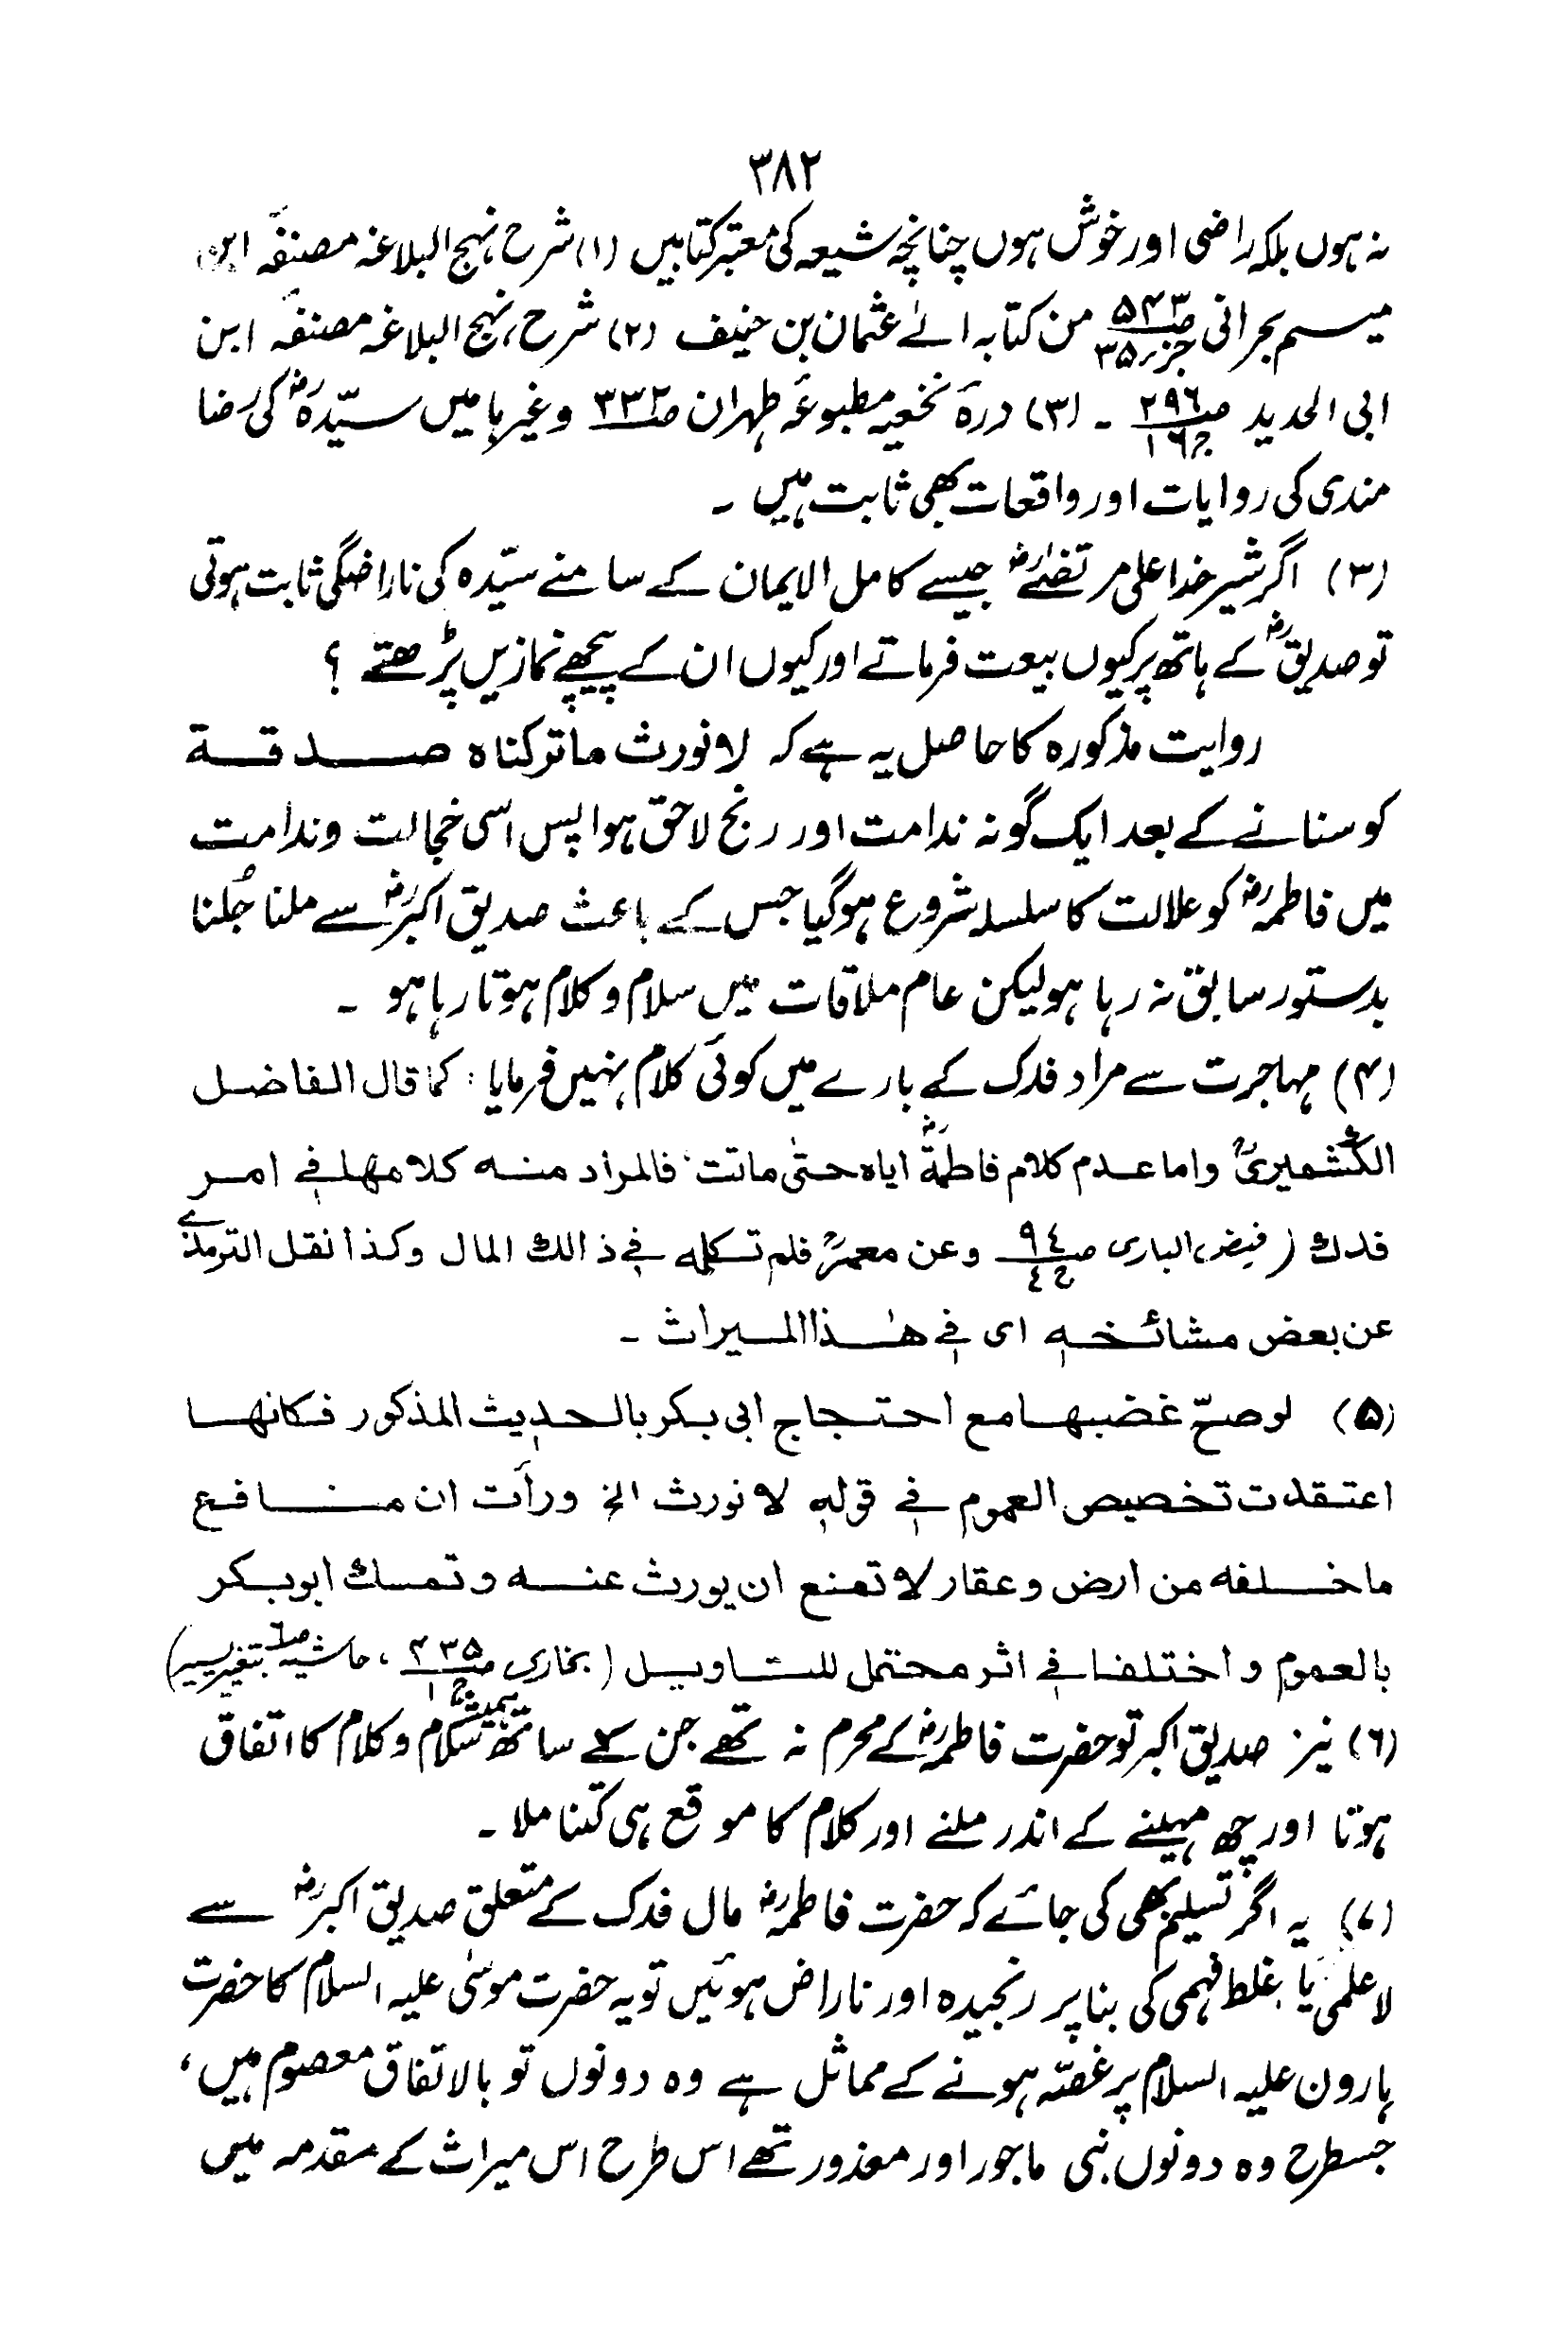 ۳۸۲
نہ ہوں بلکہ راضی اور خوش ہوں چنانچہ شیعہ کی معتبر کتابیں (۱) شرح نہج البلاغہ مصنفہ ابن
میسم بحرانی صـ۵۴۳ جز ر۳۵ من کتابہ الے عثمان بن حنیف (۲) شرح نہج البلاغہ مصنفہ ابن
ابی الحدید صـ۲۹۶ ج۱۶ ۔ (۳) درہ نخعیہ مطبوعہ طہران صـ۳۳۲ وغیرہا میں سیّدہؓ کی رضا
مندی کی روایات اور واقعات بھی ثابت ہیں ۔
(۳) اگر شیر خدا علی مرتضیٰؓ جیسے کامل الایمان کے سامنے سیّدہ کی ناراضگی ثابت ہوتی
تو صدیقؓ کے ہاتھ پر کیوں بیعت فرماتے اور کیوں ان کے پیچھے نمازیں پڑھتے ؟
روایت مذکورہ کا حاصل یہ ہے کہ لا نورث ما ترکناہ صدقة
کو سنانے کے بعد ایک گونہ ندامت اور رنج لاحق ہوا پس اسی خجالت وندامت
میں فاطمہؓ کو علالت کا سلسلہ شروع ہوگیا جس کے باعث صدیق اکبرؓ سے ملنا جُلنا
بدستور سابق نہ رہا ہو لیکن عام ملاقات میں سلام و کلام ہوتا رہا ہو ۔
(۴) مہاجرت سے مراد فدک کے بارے میں کوئی کلام نہیں فرمایا : کما قال الفاضل
الکشمیریؒ واما عدم کلام فاطمةؓ ایاہ حتیٰ ماتت فالمراد منہ کلامہا فی امر
فدك (فیض الباری صـ٩٤ ج٤ وعن معمرؒ فلم تکلمہ فی ذالك المال وکذا نقل الترمذے
عن بعض مشائخہ ای فی ھٰذا المیراث ۔
(۵) لوصحّ غضبھا مع احتجاج ابی بکر بالحدیث المذکور فکانھا
اعتقدت تخصیص العموم فی قولہ لا نورث الخ ورأت ان منافع
ما خلفہ من ارض وعقار لا تمنع ان یورث عنہ وتمسك ابوبکر
بالعموم واختلفا فی اثر محتمل للتاویل (بخاری صـ۴۳۵ ج۱ ، حاشیہ صـ٦ بتغییر یسیر)
(٦) نیز صدیق اکبر تو حضرت فاطمہؓ کے محرم نہ تھے جن کے ساتھ ہمیشہ سلام و کلام کا اتفاق
ہوتا اور چھ مہینے کے اندر ملنے اور کلام کا موقع ہی کتنا ملا ۔
(۷) یہ اگر تسلیم بھی کی جائے کہ حضرت فاطمہؓ مال فدک کے متعلق صدیق اکبرؓ سے
لا علمی یا غلط فہمی کی بنا پر رنجیدہ اور ناراض ہوئیں تو یہ حضرت موسیٰ علیہ السلام کا حضرت
ہارون علیہ السلام پر غصّہ ہونے کے مماثل ہے وہ دونوں تو بالاتفاق معصوم ہیں ،
جسطرح وہ دونوں نبی ماجور اور معذور تھے اس طرح اس میراث کے مقدمہ میں